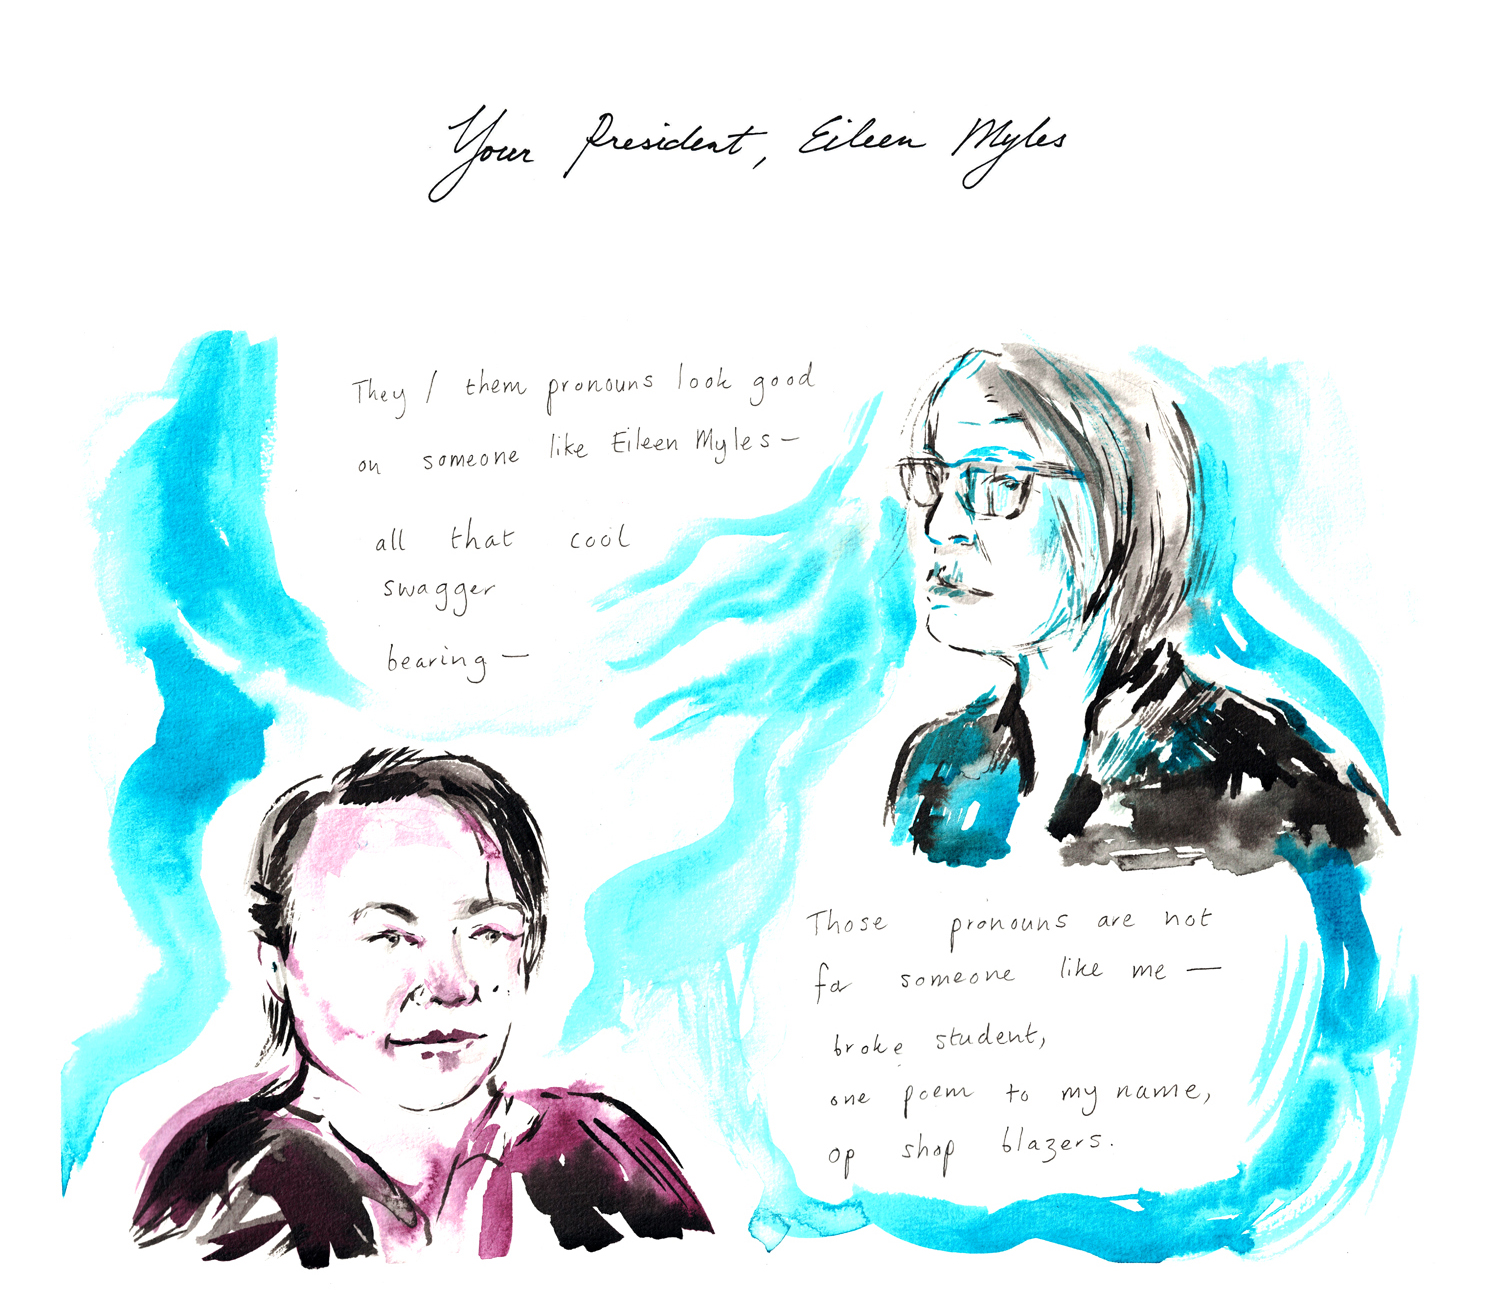 Your President, Eileen Myles
They / them pronouns look good
on someone like Eileen Myles —
all that cool
swagger
bearing —
Those pronouns are not
for someone like me —
broke student,
one poem to my name,
op shop blazers.